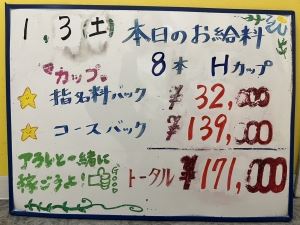 1,3(土) 本日のお給料
カップ。 8本 Hカップ
指名料バック ¥32,000
コースバック ¥139,000
一緒に
稼ごうよ! トータル ¥171,000